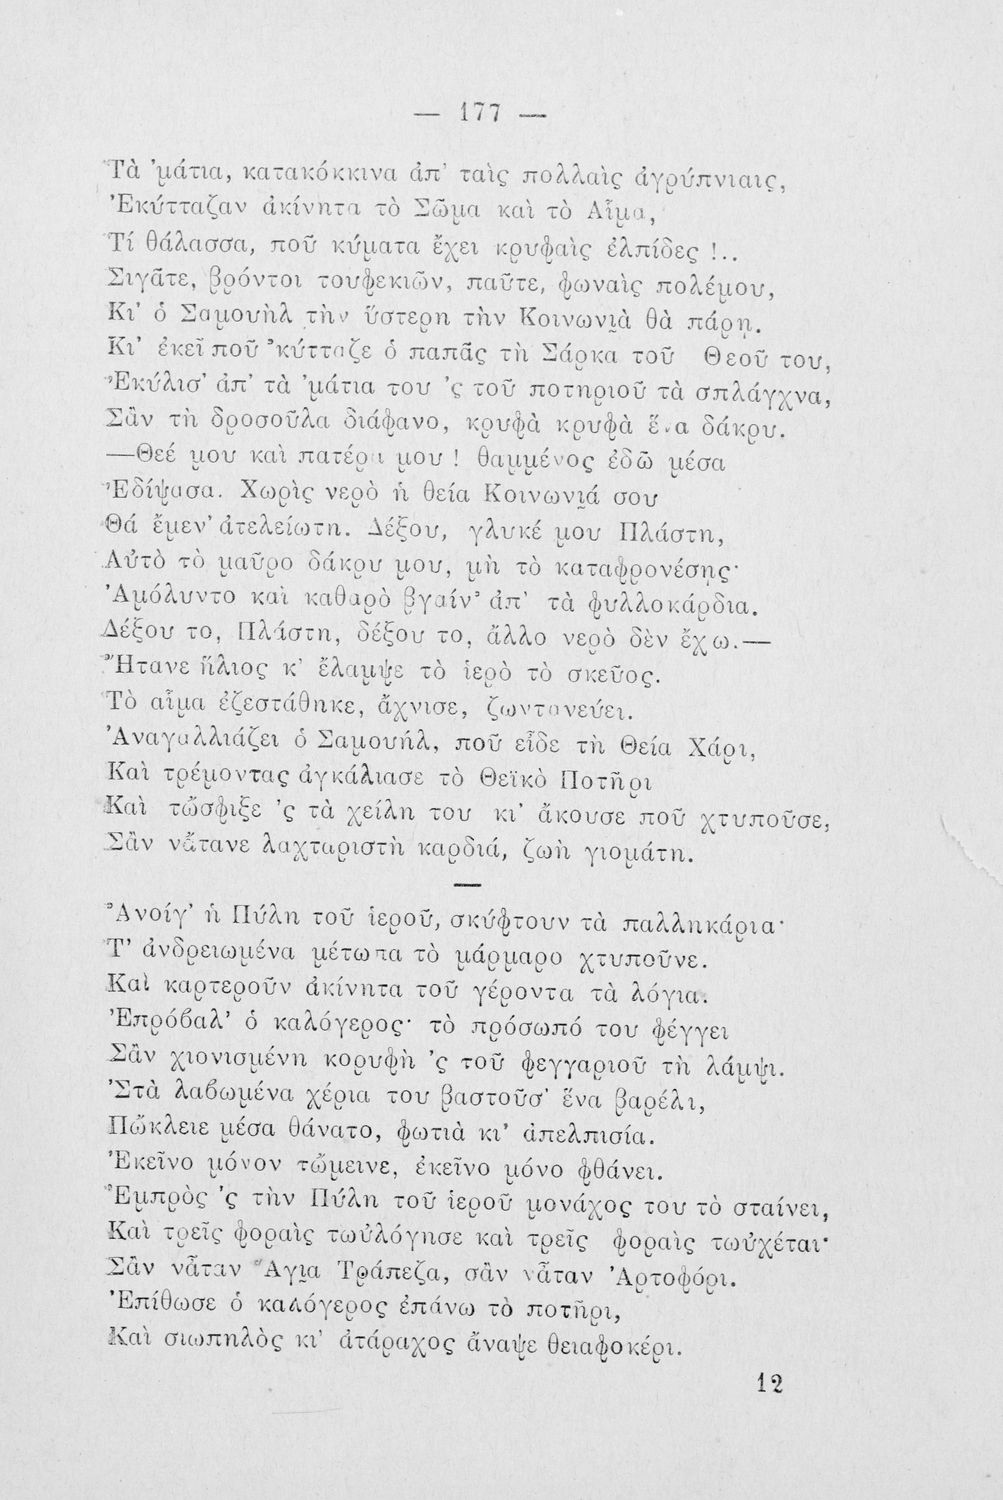 — 177 —
Τὰ 'μάτια, κατακόκκινα ἀπ' ταὶς πολλαὶς ἀγρύπνιαις,
Ἐκύτταζαν ἀκίνητα τὸ Σῶμα καὶ τὸ Αἷμα,
Τί θάλασσα, ποῦ κύματα ἔχει κρυφαὶς ἐλπίδες !..
Σιγᾶτε, βρόντοι τουφεκιῶν, παῦτε, φωναὶς πολέμου,
Κι' ὁ Σαμουὴλ τὴν ὕστερη τὴν Κοινωνιὰ θὰ πάρῃ.
Κι' ἐκεῖ ποῦ 'κύτταζε ὁ παπᾶς τὴ Σάρκα τοῦ Θεοῦ του,
Ἐκύλισ' ἀπ' τὰ 'μάτια του 'ς τοῦ ποτηριοῦ τὰ σπλάγχνα,
Σὰν τὴ δροσοῦλα διάφανο, κρυφὰ κρυφὰ ἕνα δάκρυ.
—Θεέ μου καὶ πατέρα μου ! θαμμένος ἐδῶ μέσα
Ἐδίψασα. Χωρὶς νερὸ ἡ θεία Κοινωνιά σου
Θά ἔμεν' ἀτελείωτη. Δέξου, γλυκέ μου Πλάστη,
Αὐτὸ τὸ μαῦρο δάκρυ μου, μὴ τὸ καταφρονέσῃς·
Ἀμόλυντο καὶ καθαρὸ βγαίν' ἀπ' τὰ φυλλοκάρδια.
Δέξου το, Πλάστη, δέξου το, ἄλλο νερὸ δὲν ἔχω.—
Ἤτανε ἥλιος κ' ἔλαμψε τὸ ἱερὸ τὸ σκεῦος.
Τὸ αἷμα ἐζεστάθηκε, ἄχνισε, ζωντανεύει.
Ἀναγαλλιάζει ὁ Σαμουήλ, ποῦ εἶδε τὴ Θεία Χάρι,
Καὶ τρέμοντας ἀγκάλιασε τὸ Θεϊκὸ Ποτῆρι
Καὶ τὤσφιξε 'ς τὰ χείλη του κι' ἄκουσε ποῦ χτυποῦσε,
Σὰν νἄτανε λαχταριστὴ καρδιά, ζωὴ γιομάτη.
—
Ἀνοίγ' ἡ Πύλη τοῦ ἱεροῦ, σκύφτουν τὰ παλληκάρια·
Τ' ἀνδρειωμένα μέτωπα τὸ μάρμαρο χτυποῦνε.
Καὶ καρτεροῦν ἀκίνητα τοῦ γέροντα τὰ λόγια.
Ἐπρόβαλ' ὁ καλόγερος· τὸ πρόσωπό του φέγγει
Σὰν χιονισμένη κορυφὴ 'ς τοῦ φεγγαριοῦ τὴ λάμψι.
Στὰ λαβωμένα χέρια του βαστοῦσ' ἕνα βαρέλι,
Πὤκλειε μέσα θάνατο, φωτιὰ κι' ἀπελπισία.
Ἐκεῖνο μόνον τὤμεινε, ἐκεῖνο μόνο φθάνει.
Ἐμπρὸς 'ς τὴν Πύλη τοῦ ἱεροῦ μονάχος του τὸ σταίνει,
Καὶ τρεῖς φοραὶς τωὐλόγησε καὶ τρεῖς φοραὶς τωὐχέται·
Σὰν νἆταν Ἅγια Τράπεζα, σὰν νἆταν Ἀρτοφόρι.
Ἐπίθωσε ὁ καλόγερος ἐπάνω τὸ ποτῆρι,
Καὶ σιωπηλὸς κι' ἀτάραχος ἄναψε θειαφοκέρι.
12